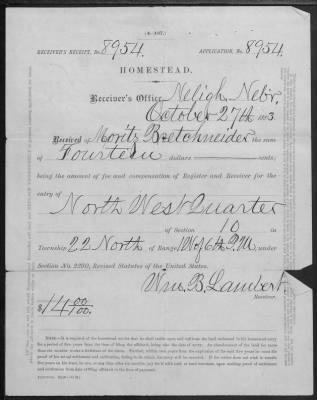 (4-137.)
RECEIVER'S RECEIPT, No. 8954. APPLICATION, No. 8954.
HOMESTEAD.
Receiver's Office, Neligh, Nebr.
October 27th 1883.
Received of Moritz Bretchneider the sum
of Fourteen dollars cents;
being the amount of fee and compensation of Register and Receiver for the
entry of
North West Quarter
of Section 10 in
Township 22 North of Range 1 W of 6th P.M. under
Section No. 2290, Revised Statutes of the United States.
Wm. B. Lambert.
Receiver.
$14 00/100.
NOTE.—It is required of the homestead settler that he shall reside upon and cultivate the land embraced in his homestead entry
for a period of five years from the time of filing the affidavit, being also the date of entry. An abandonment of the land for more
than six months works a forfeiture of the claim. Further, within two years from the expiration of the said five years he must file
proof of his actual settlement and cultivation, failing to do which, his entry will be canceled. If the settler does not wish to remain
five years on his tract, he can, at any time after six months, pay for it with cash or land-warrants, upon making proof of settlement
and cultivation from date of filing affidavit to the time of payment.